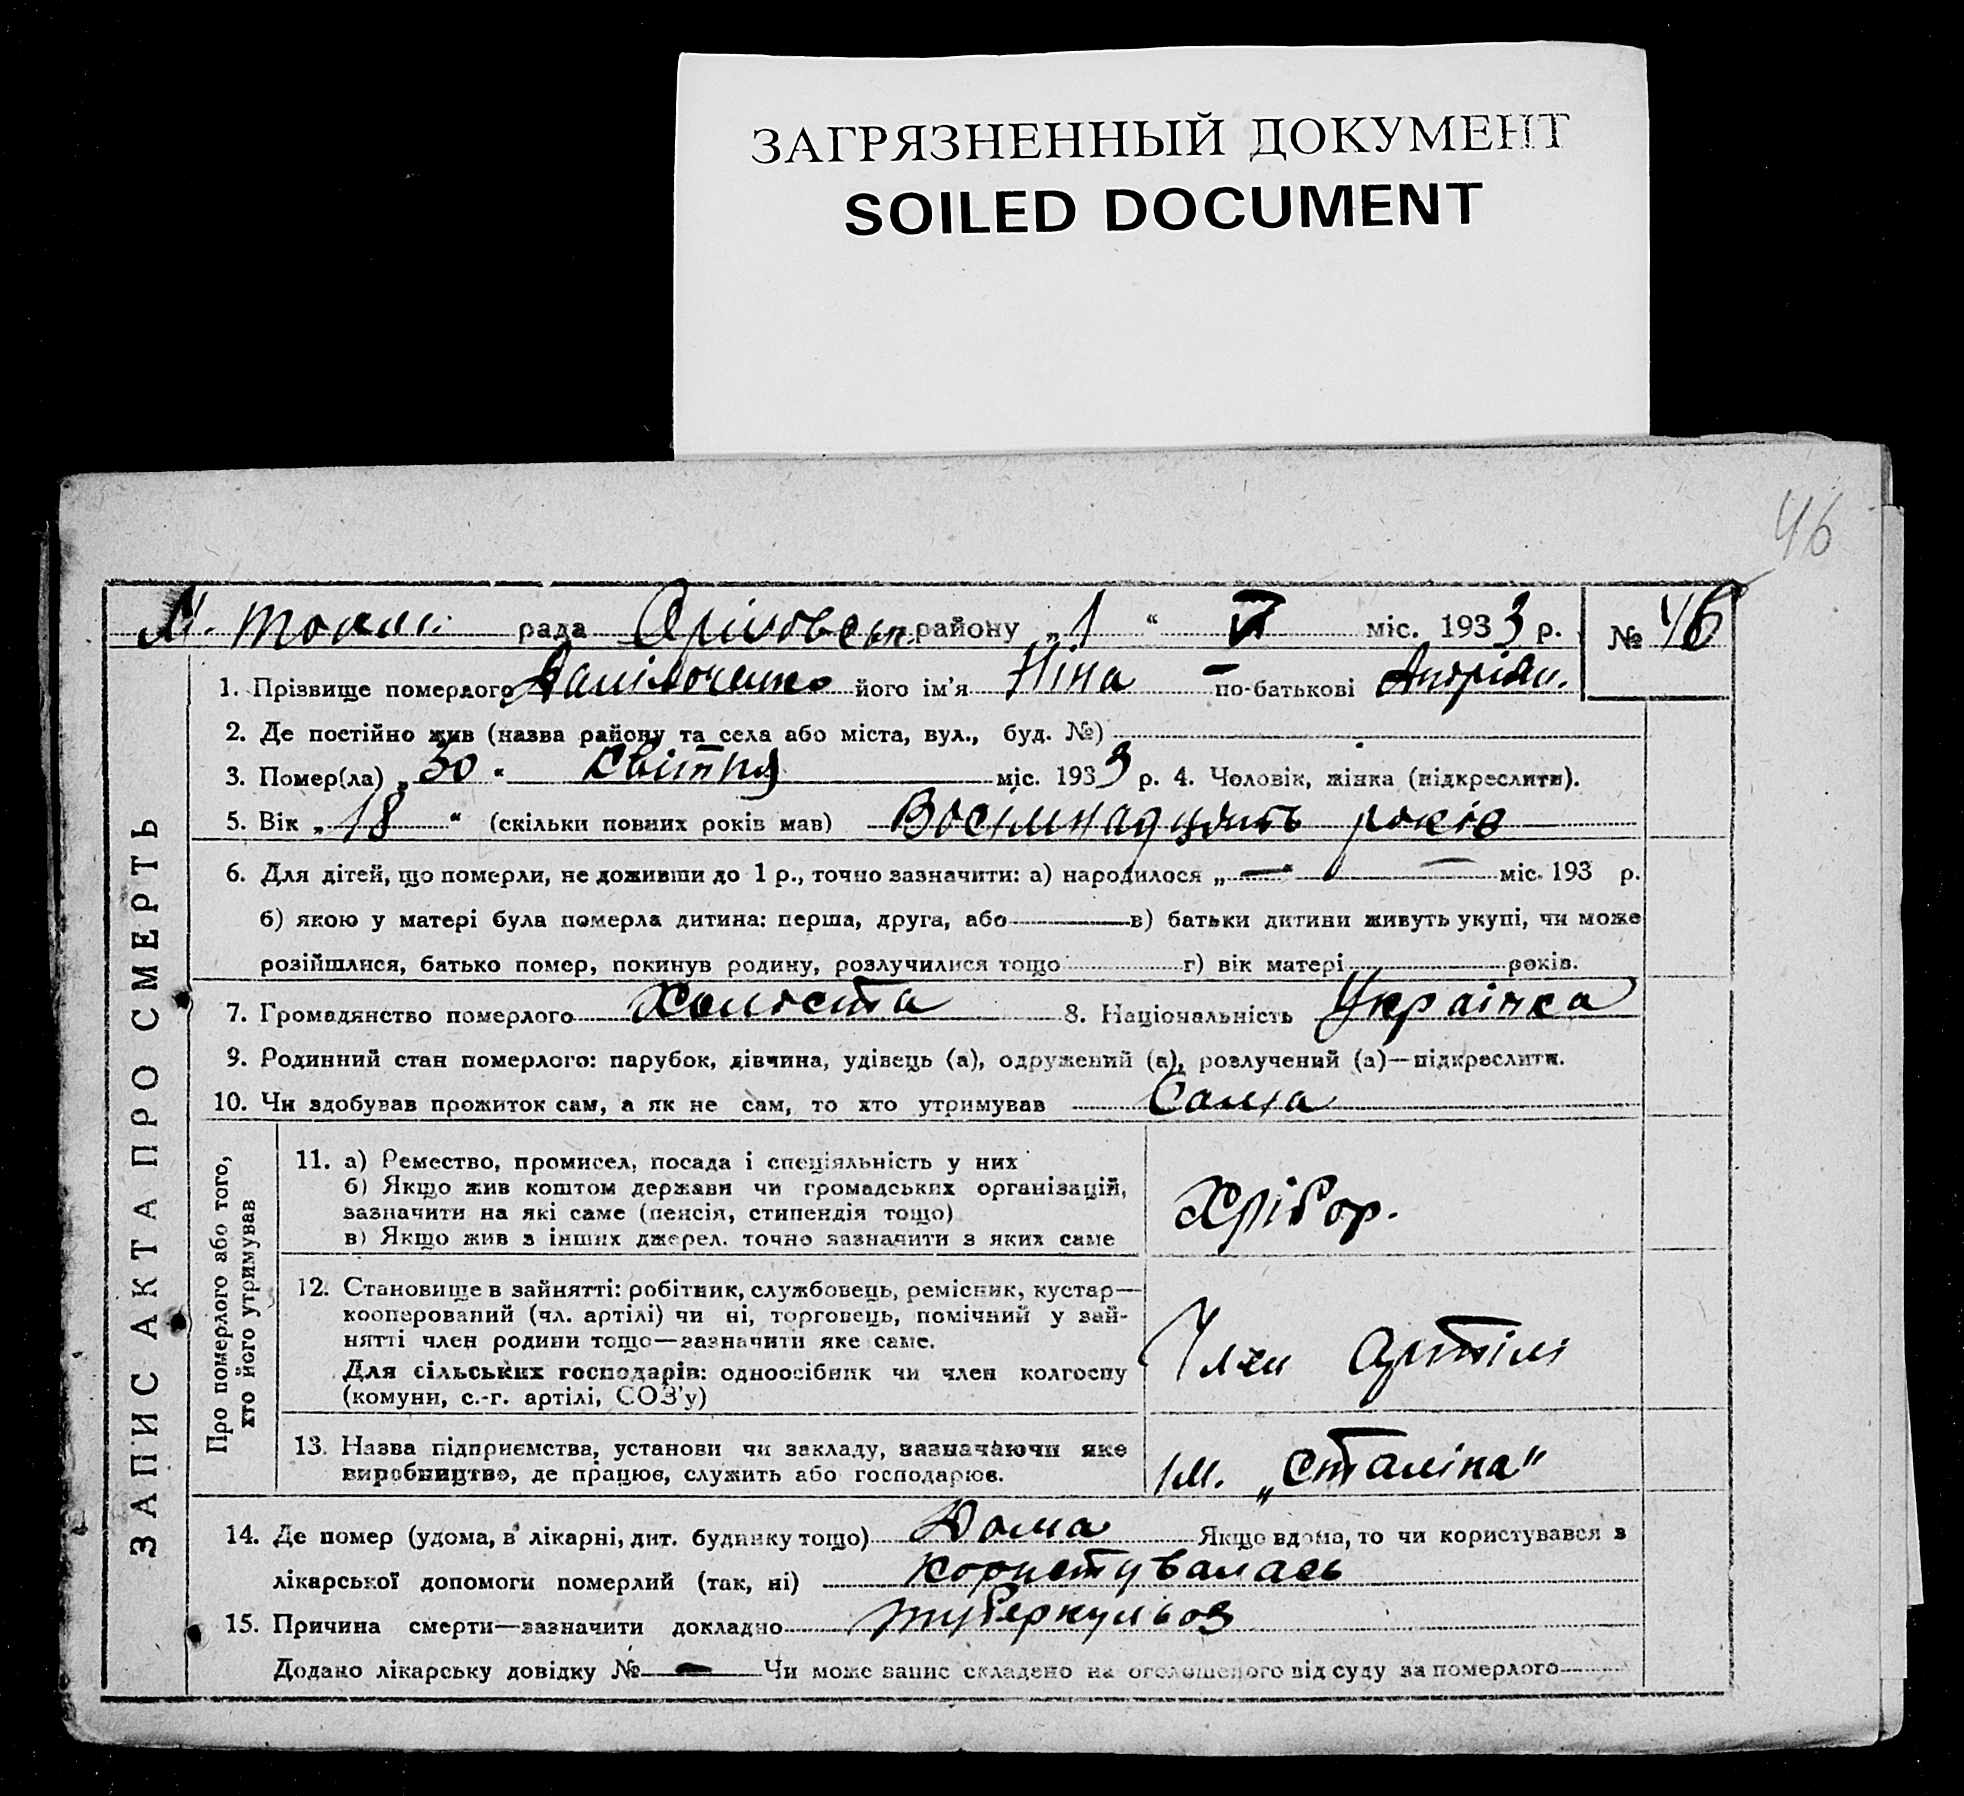 ЗАГРЯЗНЕННЫЙ ДОКУМЕНТ
SOILED DOCUMENT
46
М. Токмач. рада Оріховськ. району „1“ VI міс. 1933 р. № 46
ЗАПИС АКТА ПРО СМЕРТЬ
1. Прізвище померлого Даніловченко його ім'я Ніна по-батькові Андріян.
2. Де постійно жив (назва району та села або міста, вул., буд. №)
3. Помер(ла) „30“ квітня міс. 1933 р. 4. Чоловік, жінка (підкреслити).
5. Вік „18“ (скільки повних років мав) Восімнадцять років
6. Для дітей, що померли, не доживши до 1 р., точно зазначити: а) народилося „—“ — міс. 193 р.
б) якою у матері була померла дитина: перша, друга, або в) батьки дитини живуть укупі, чи може
розійшлися, батько помер, покинув родину, розлучилися тощо г) вік матері років.
7. Громадянство померлого Холоста 8. Національність Українка
9. Родинний стан померлого: парубок, дівчина, удівець (а), одружений (а), розлучений (а)—підкреслити.
10. Чи здобував прожиток сам, а як не сам, то хто утримував Сама
Про померлого або того,
хто його утримував
11. а) Ремество, промисел, посада і спеціяльність у них
б) Якщо жив коштом держави чи громадських організацій,
зазначити на які саме (пенсія, стипендія тощо)
в) Якщо жив з інших джерел. точно зазначити з яких саме
Хлібор.
12. Становище в зайнятті: робітник, службовець, ремісник, кустар—
кооперований (чл. артілі) чи ні, торговець, помічний у зай-
нятті член родини тощо—зазначити яке саме.
Для сільських господарів: одноосібник чи член колгоспу
(комуни, с.-г. артілі, СОЗ'у)
Член артілі
13. Назва підприємства, установи чи закладу, зазначаючи яке
виробництво, де працює, служить або господарює.
ім. „Сталіна“
14. Де помер (удома, в лікарні, дит. будинку тощо) Дома Якщо вдома, то чи користувався з
лікарської допомоги померлий (так, ні) користувалась
15. Причина смерти—зазначити докладно туберкульоз
Додано лікарську довідку № — Чи може запис складено на оголошеного від суду за померлого